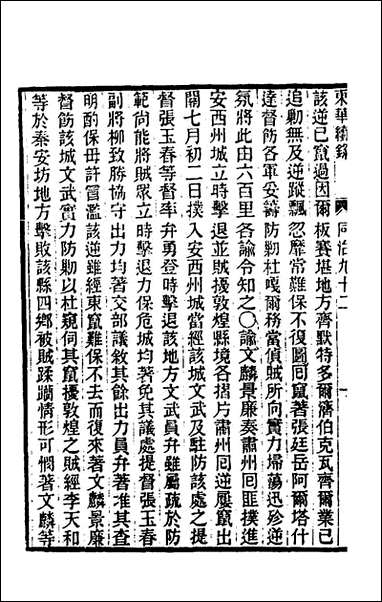 東華續錄　同治九十二
該逆已竄過因爾板賽堪地方齊默特多爾濟伯克瓦齊爾業已
追勦無及逆蹤飄忽靡常難保不復圖囘竄著張廷岳阿爾塔什
達督飭各軍妥籌防勦杜嘎爾務當偵賊所向實力埽蕩迅殄逆
氛將此由六百里各諭令知之〇諭文麟景廉奏肅州囘匪撲進
安西州城立時擊退並賊擾敦煌縣境各摺片肅州囘逆屢竄出
關七月初二日撲入安西州城當經該城文武及駐防該處之提
督張玉春等督率弁勇登時擊退該地方文武員弁雖屬疏於防
範尚能將賊眾立時擊退力保危城均著免其議處提督張玉春
副將柳致勝協守出力均著交部議敘其餘出力員弁著准其查
明酌保毋許冒濫該逆雖經東竄難保不去而復來著文麟景廉
督飭該城文武實力防勦以杜窺伺其竄擾敦煌之賊經李天和
等於秦安坊地方擊敗該縣四鄉被賊蹂躪情形可憫著文麟等